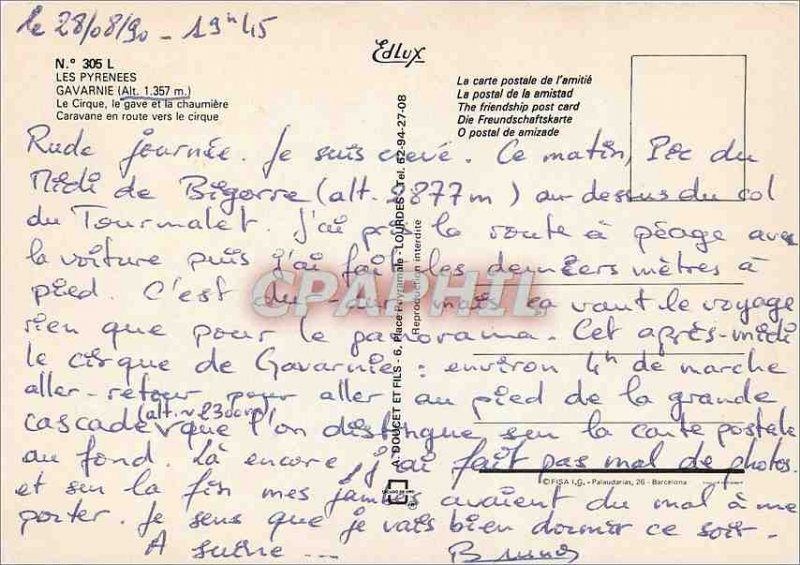 le 28/08/90 - 19h45
Edlux
N.° 305 L
LES PYRENEES
GAVARNIE (Alt. 1.357 m.)
Le Cirque, le gave et la chaumière
Caravane en route vers le cirque
La carte postale de l'amitié
La postal de la amistad
The friendship post card
Die Freundschaftskarte
O postal de amizade
Rude journée. Je suis crevé. Ce matin, Pic du
Midi de Bigorre (alt. 2877m) au-dessus du col
du Tourmalet. J'ai pris la route à péage avec
la voiture puis j'ai fait les derniers mètres à
pied. C'est du dur mais ça vaut le voyage
rien que pour le panorama. Cet après-midi
le cirque de Gavarnie : environ 4h de marche
aller-retour pour aller au pied de la grande
cascade (alt. ~ 2300m) que l'on distingue sur la carte postale
au fond. Là encore j'ai fait pas mal de photos.
et sur la fin mes jambes avaient du mal à me
porter. Je sens que je vais bien dormir ce soir.
A suivre ... Bruno
A. DOUCET ET FILS - 6, Place Peyramale - LOURDES - Tel. 62-94-27-08
Reproduction interdite
© FISA I.G. - Palaudarias, 26 - Barcelona
CPAPHIL